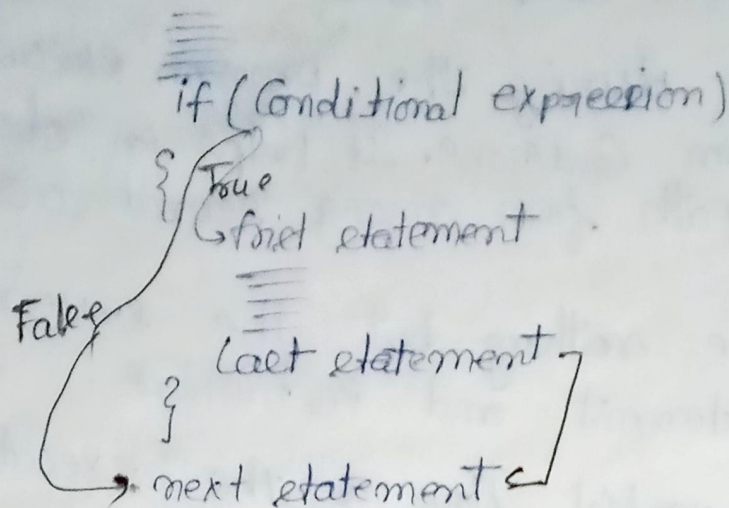 if (Conditional expression)
{ True
first statement
False
Last statement
}
next statement